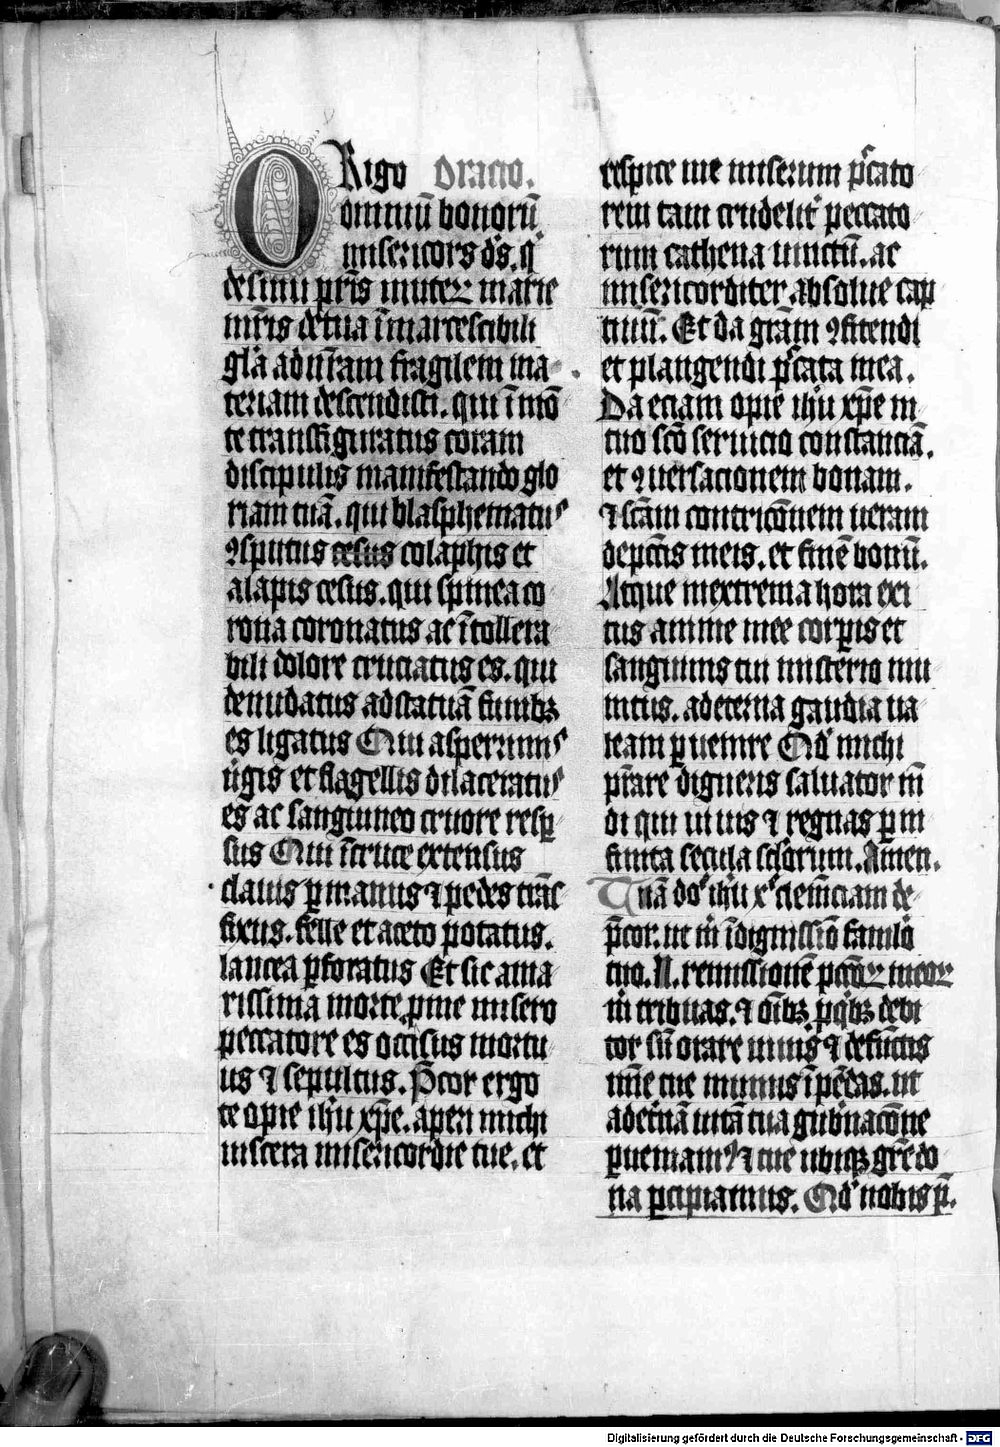 ORigo Oracio.
omniū bonorū
misericors d̄s. q͛
de sinu pr̄is inuteꝝ marie
mr̄is de tua īmarcescibili
gl̄a ad nr̄am fragilem ma
teriam descendisti. qui ī mō
te transfiguratus coram
discipulis manifestando glo
riam tuā. qui blasphematus
ꝯsputus cesus colaphis et
alapis cesus. qui spinea co
rona coronatus ac ītollera
bili dolore cruciatus es. qui
denudatus ad statuā funibꝫ
es ligatus Qui asperrimis
uigis et flagellis dilaceratus
es ac sanguineo cruore resꝑ
sus Qui ī cruce extensus
clauis ꝑ manus ⁊ pedes trās
fixus. felle et aceto potatus.
lancea ꝑforatus Et sic ama
rissima morte ꝓ me misero
peccatore es occisus mortu
us ⁊ sepultus. P̄cor ergo
te o pie ih̄u xp̄e. aperi michi
uiscera misericordie tue. et
respice me miserum p̄cato
rem tam crudelit͛ peccato
rum cathena uinctū. ac
misericorditer absolue cap
tiuū. Et da grām ꝯfitendi
et plangendi p̄cata mea.
Da eciam o pie ih̄u xp̄e in
tuo sc̄o seruicio constanciā.
et ꝯuersacionem bonam.
⁊ sc̄am contricōnem ueram
de pc̄cis meis. et finē bonū.
Atque in extrema hora exi
tus anime mee corꝑis et
sanguinis tui misterio mu
nitus. ad eterna gaudia ua
leam ꝑuenire Qd̓ michi
p̄stare digneris saluator mū
di qui uiuis ⁊ regnas ꝑ in
finita secula sc̄lorum. Amen.
Tuā do͛ ih̄u x͛ clem̄ciam de
p̄cor. ut m̄ īdignissīo famlo͛
tuo. N. remissionē pc̄coꝝ meoꝝ
m̄ tribuas. ⁊ oībꝫ ꝓ q͛bꝫ debi
tor sū orare uiuis ⁊ defūctis
mīe tue munus īpēdas. ut
ad et͛nā uitā tua gub͛nacōne
ꝑueniam͛ ⁊ tue ubiqꝫ gr̄e do
na ꝑcipiamus. Qd̓ nobis p̄.
Digitalisierung gefördert durch die Deutsche Forschungsgemeinschaft - DFG